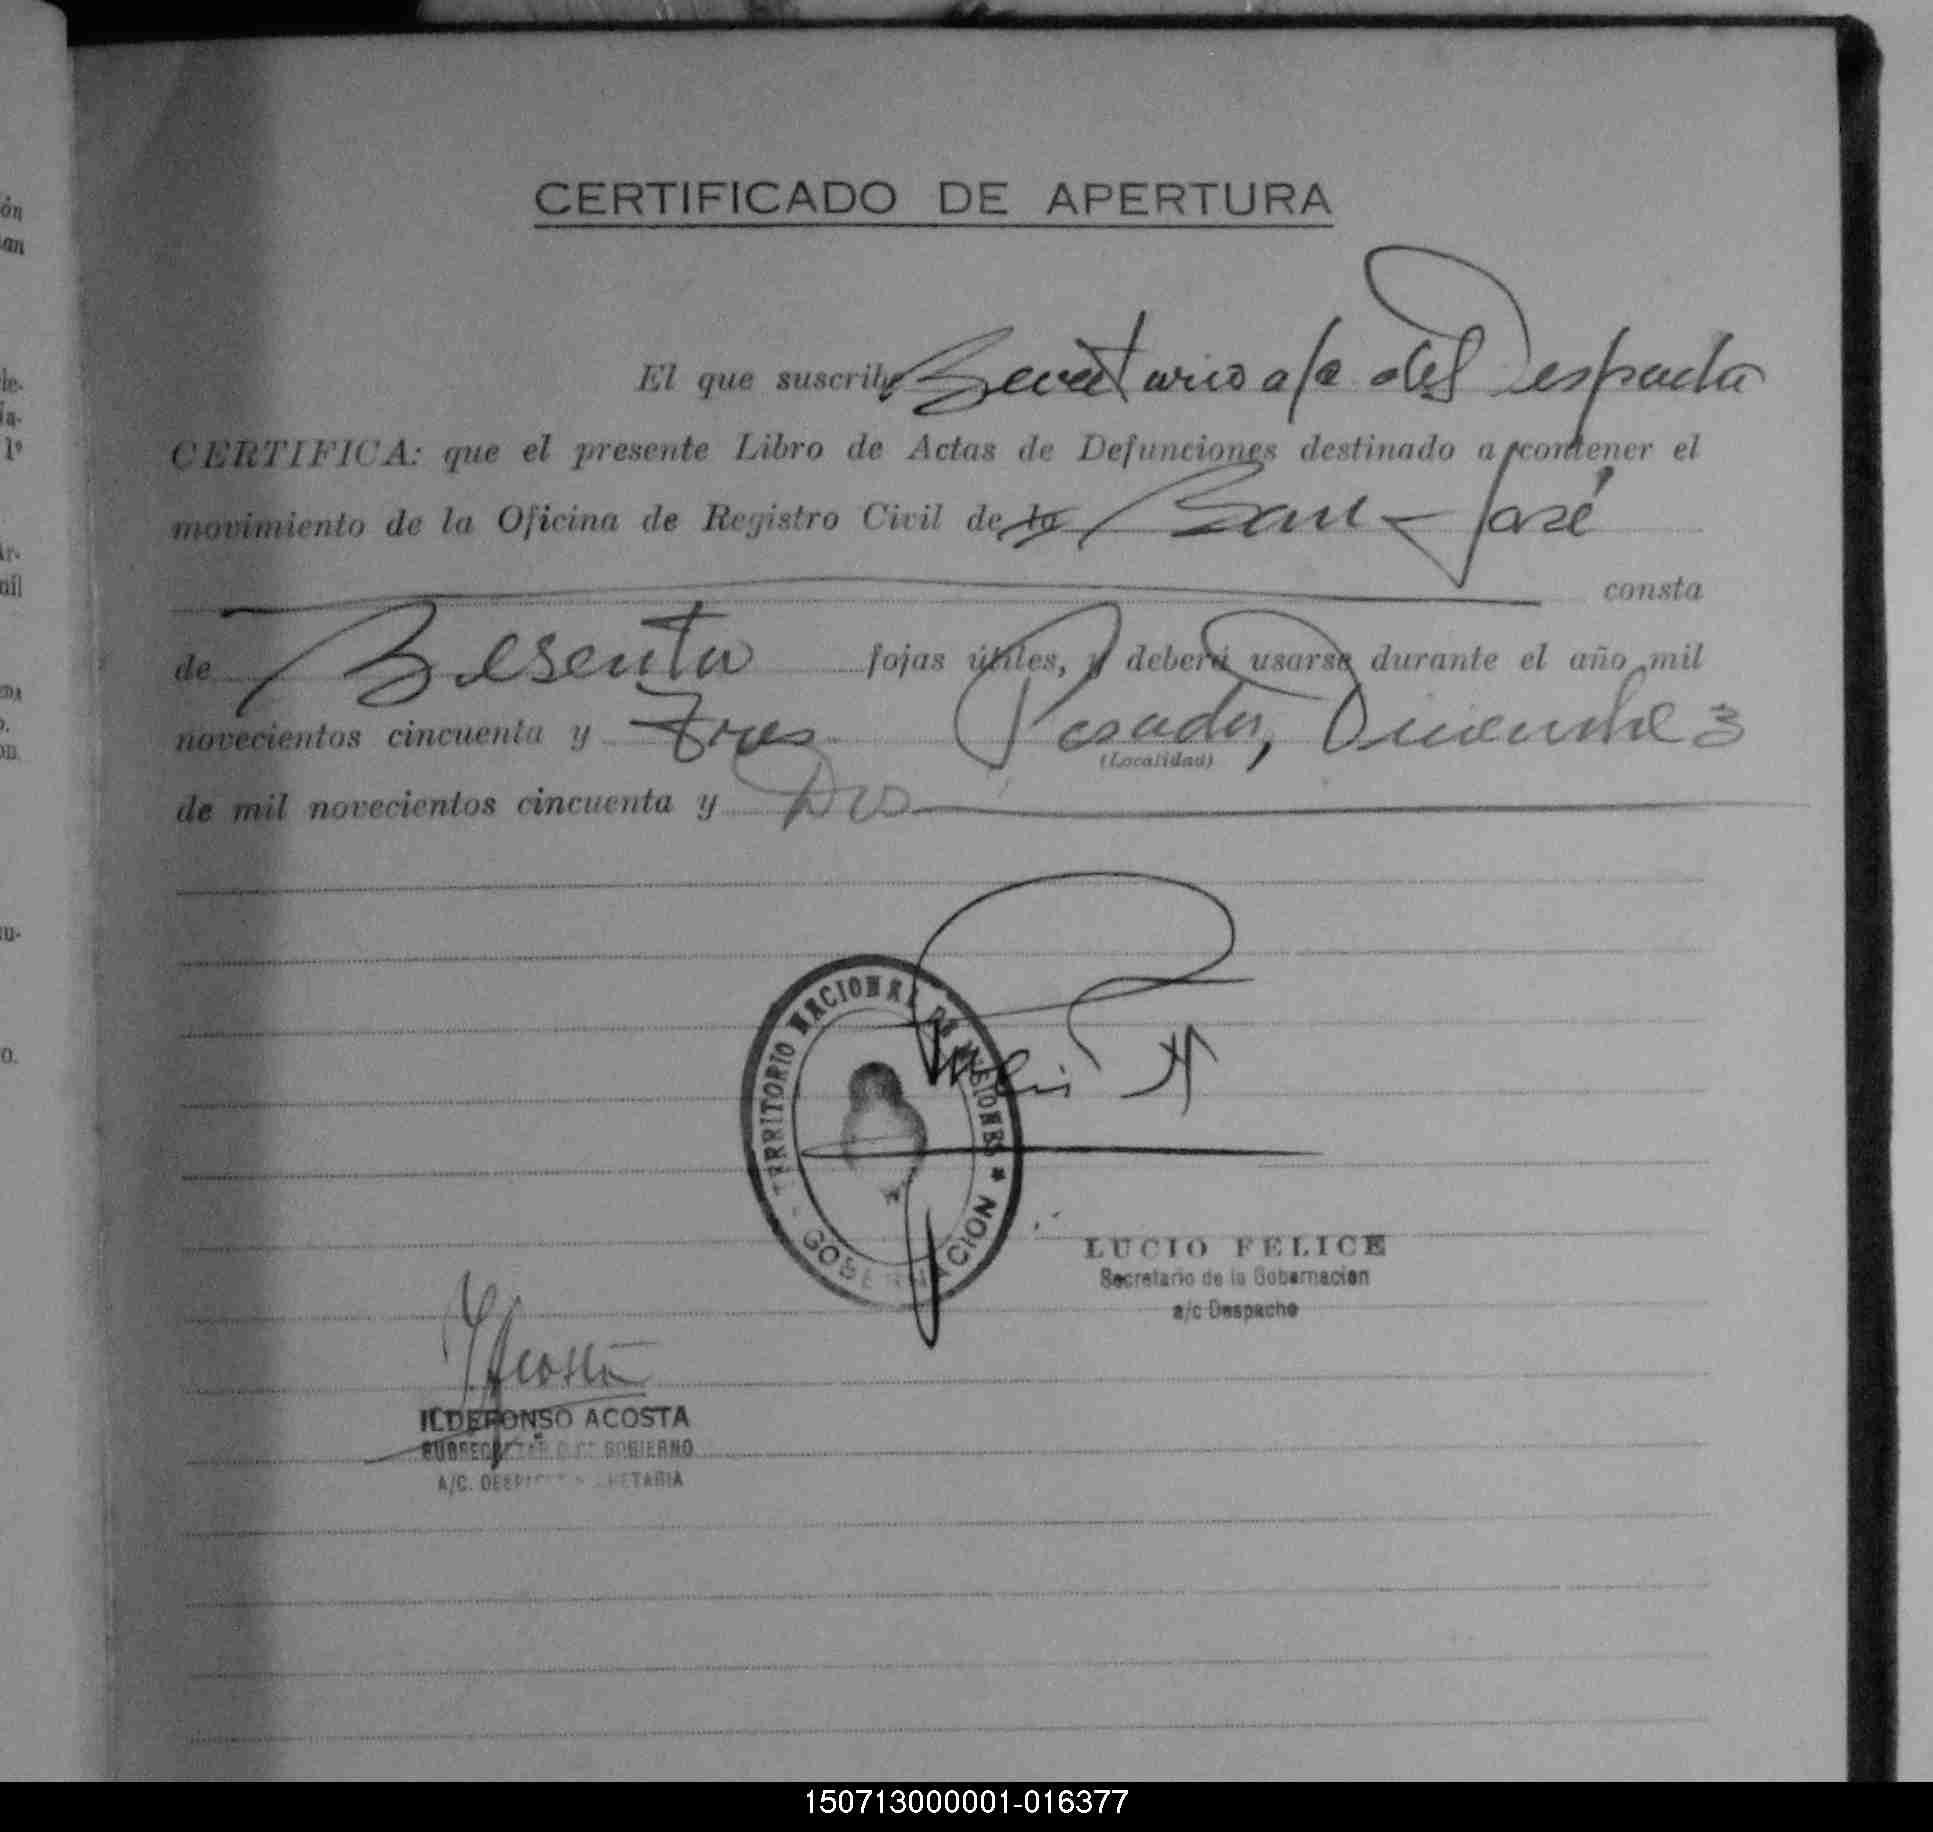 ón
an
le-
ía-
1º
Ar-
mil
CERTIFICADO DE APERTURA
El que suscribe Secretario a/c del Despacho
CERTIFICA: que el presente Libro de Actas de Defunciones destinado a contener el
movimiento de la Oficina de Registro Civil de la San José
consta
de Sesenta fojas útiles, y deberá usarse durante el año mil
novecientos cincuenta y tres Posadas, Diciembre 3
(Localidad)
de mil novecientos cincuenta y Dos
TERRITORIO NACIONAL DE MISIONES
GOBERNACION
LUCIO FELICE
Secretario de la Gobernacion
a/c Despacho
IAcosta
ILDEFONSO ACOSTA
SUBSECRETARIO DE GOBIERNO
A/C. DESPACHO SECRETARIA
150713000001-016377